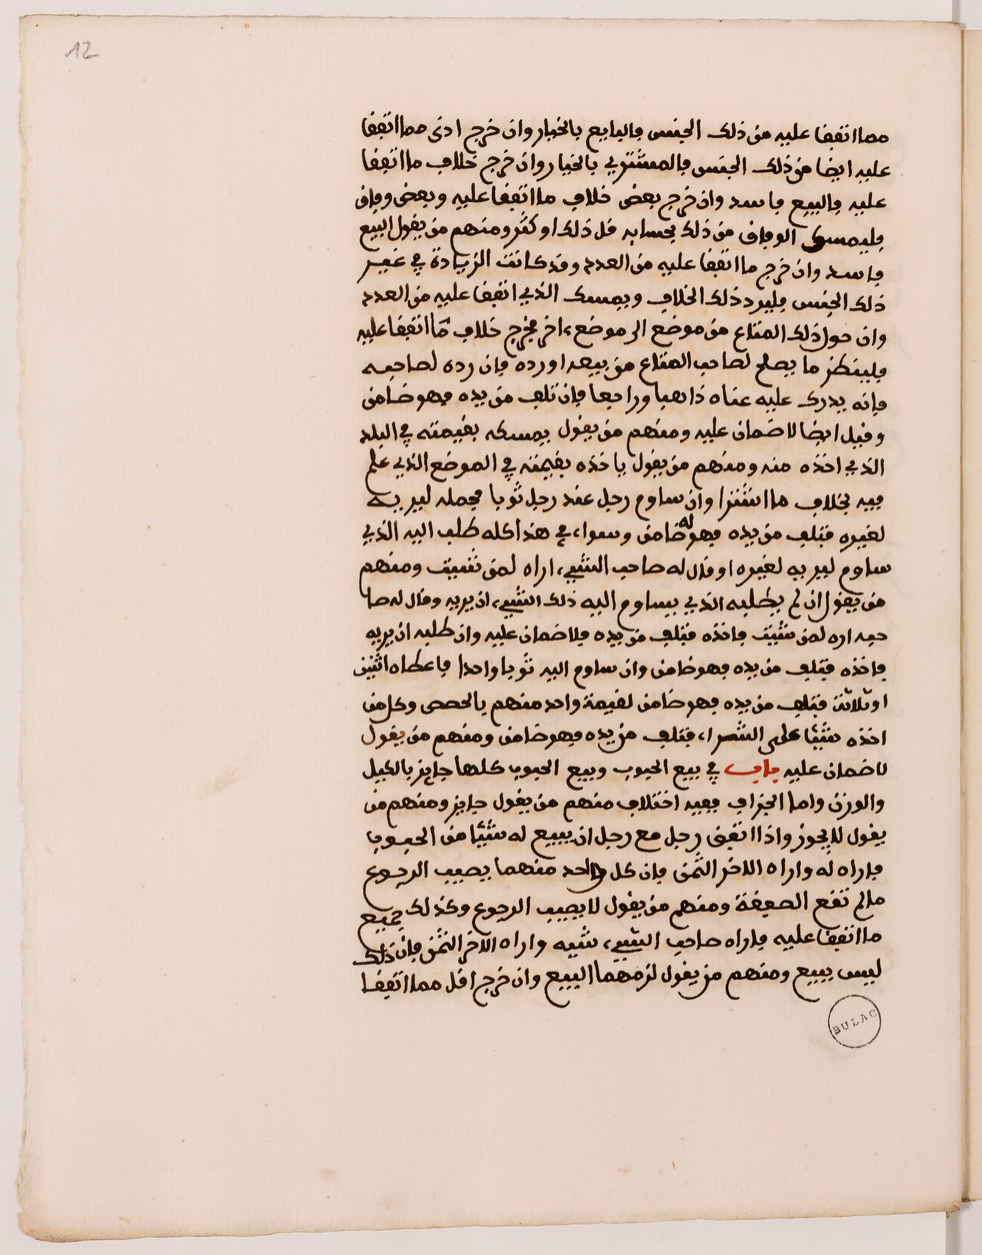 12
مما اتفقا عليه من ذلك الجنس فالبايع بالخيار وان خرج ادنى مما اتفقا
عليه ايضا من ذلك الجنس فالمشتري بالخيار وان خرج خلاف ما اتفقا
عليه فالبيع فاسد وان خرج بعض خلاف ما اتفقا عليه وبعض وفاق
فليمسك الوفاق من ذلك بحسابه قل ذلك او كثر ومنهم من يقول البيع
فاسد وان خرج ما اتفقا عليه من العدد وقد كانت الزيادة في غير
ذلك الجنس فليرد ذلك الخلاف ويمسك الذي اتفقا عليه من العدد
وان حول ذلك المتاع من موضع الى موضع ءاخر فخرج خلاف ما اتفقا عليه
فلينظر ما يصلح لصاحب المتاع من بيعه او رده فان رده لصاحبه
فانه يدرك عليه عناه ذاهبا وراجعا فان تلف من يده فهو ضامن
وقيل ايضا لا ضمان عليه ومنهم من يقول يمسكه بقيمته في البلد
الذي اخذه منه ومنهم من يقول ياخذه بقيمته في الموضع الذي علم
فيه بخلاف ما اشترا وان ساوم رجل عند رجل ثوبا فحمله ليريه
لغيره فتلف من يده فهو له ضامن وسواء في هذا كله طلب اليه الذي
ساوم ليريه لغيره او قال له صاحب الشيء اراه لمن شييت ومنهم
من يقول ان لم يطلبه الذي يساوم اليه ذلك الشيء ان يريه وقال له صا
حبه اره لمن شييت فاخذه فتلف من يده فلا ضمان عليه وان طلبه ان يريه
فاخذه فتلف من يده فهو ضامن وان ساوم اليه ثوبا واحدا فاعطاه اثنين
او ثلاثة فتلف من يده فهو ضامن لقيمة واحد منهم بالحصص وكل من
اخذه شيئا على الشراء فتلف من يده فهو ضامن ومنهم من يقول
لا ضمان عليه باب في بيع الحبوب وبيع الحبوب كلها جايز بالكيل
والوزن واما الجزاف ففيه اختلاف منهم من يقول جايز ومنهم من
يقول لا يجوز واذا اتفق رجل مع رجل ان يبيع له شيئا من الحبوب
فاراه له واراه الاخر الثمن فان كل واحد منهما يصيب الرجوع
ما لم تقع الصفقة ومنهم من يقول لا يصيب الرجوع وكذلك جميع
ما اتفقا عليه فاراه صاحب الشيء شيه واراه الاخر الثمن فان ذلك
ليس ببيع ومنهم من يقول لزمهما البيع وان خرج اقل مما اتفقا
BULAC